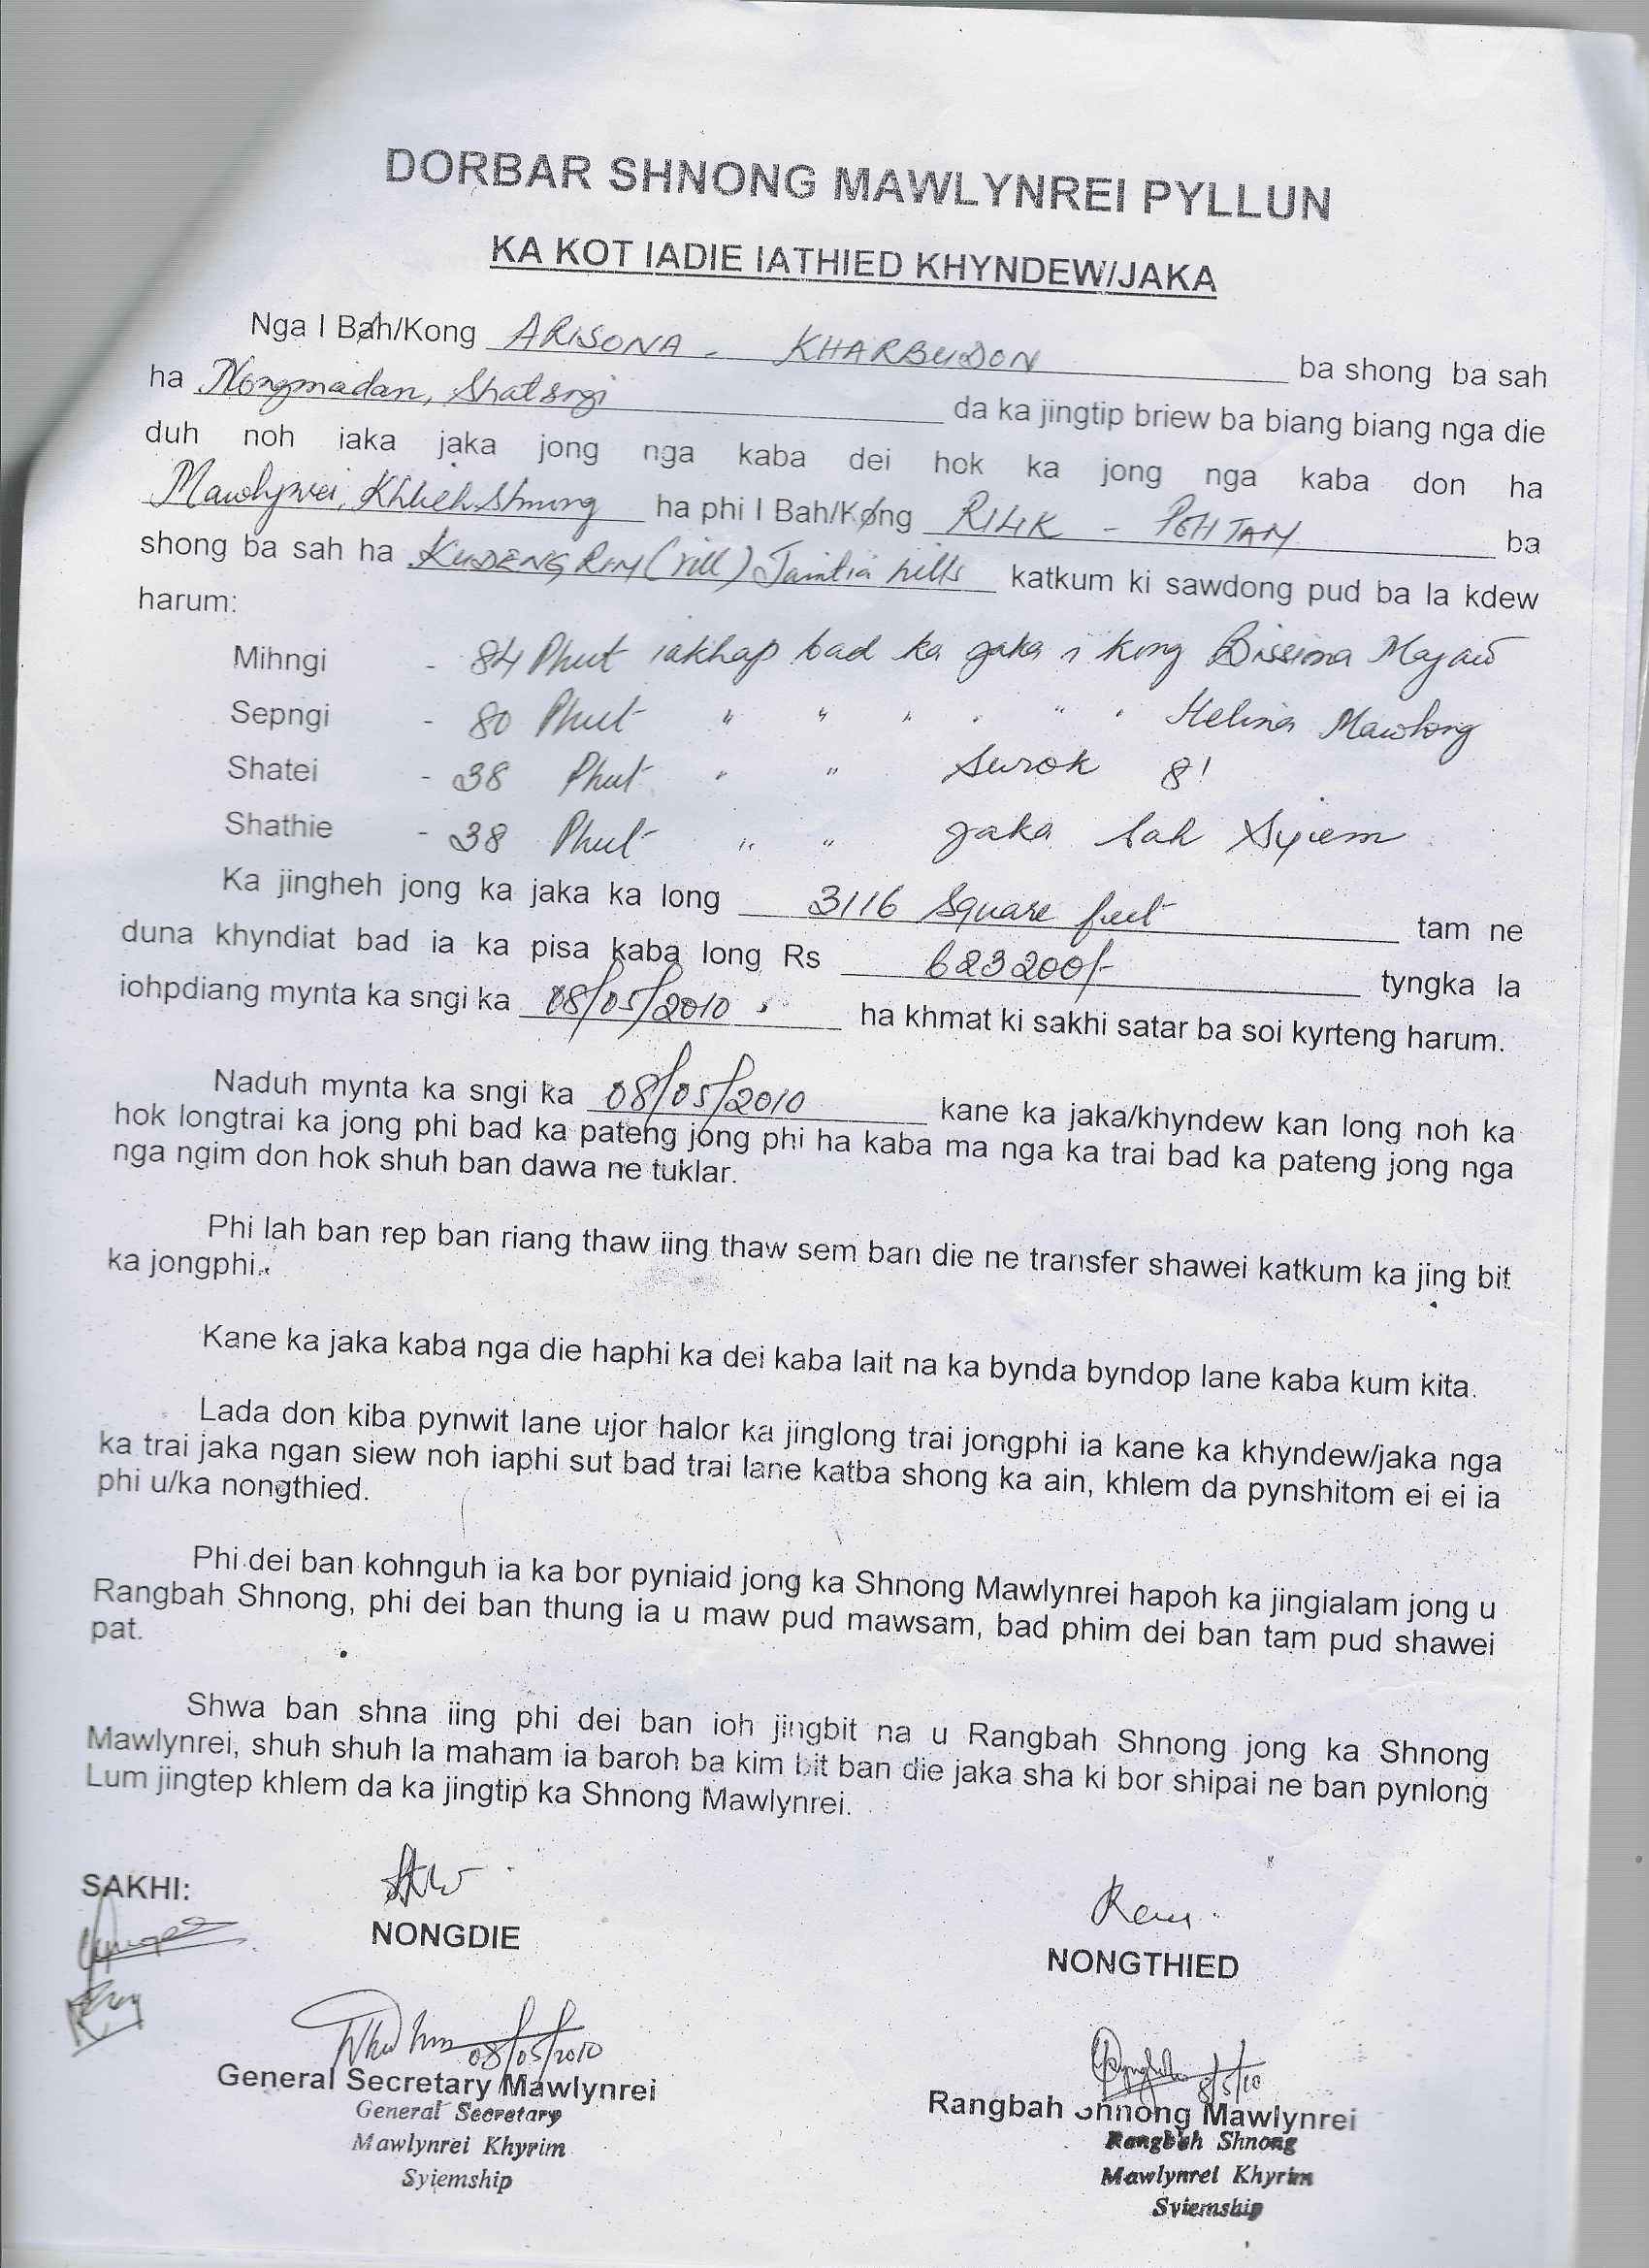 DORBAR SHNONG MAWLYNREI PYLLUN
KA KOT IADIE IATHIED KHYNDEW/JAKA
Nga I Bah/Kong ARISONA - KHARBUDON ba shong ba sah
ha Nongmadan, Shatsngi da ka jingtip briew ba biang biang nga die
duh noh iaka jaka jong nga kaba dei hok ka jong nga kaba don ha
Khlieh Shnong ha phi I Bah/Kong RILIK - POHTAM ba
shong ba sah ha KUDENG RIM (vill) Jaintia hills katkum ki sawdong pud ba la kdew
harum:
Mihngi - 84 Phut iakhap bad ka jaka i kong Bissima Majaw
Sepngi - 80 Phut " " " " " " Helina Mawlong
Shatei - 38 Phut " " Surok 8'
Shathie - 38 Phut " " jaka sah Syiem
Ka jingheh jong ka jaka ka long 3116 Square feet tam ne
duna khyndiat bad ia ka pisa kaba long Rs 623200/- tyngka la
iohpdiang mynta ka sngi ka 08/05/2010 ha khmat ki sakhi satar ba soi kyrteng harum.
Naduh mynta ka sngi ka 08/05/2010 kane ka jaka/khyndew kan long noh ka
hok longtrai ka jong phi bad ka pateng jong phi ha kaba ma nga ka trai bad ka pateng jong nga
nga ngim don hok shuh ban dawa ne tuklar.
Phi lah ban rep ban riang thaw iing thaw sem ban die ne transfer shawei katkum ka jing bit
ka jongphi.
Kane ka jaka kaba nga die haphi ka dei kaba lait na ka bynda byndop lane kaba kum kita.
Lada don kiba pynwit lane ujor halor ka jinglong trai jongphi ia kane ka khyndew/jaka nga
ka trai jaka ngan siew noh iaphi sut bad trai lane katba shong ka ain, khlem da pynshitom ei ei ia
phi u/ka nongthied.
Phi dei ban kohnguh ia ka bor pyniaid jong ka Shnong Mawlynrei hapoh ka jingialam jong u
Rangbah Shnong, phi dei ban thung ia u maw pud mawsam, bad phim dei ban tam pud shawei
pat.
Shwa ban shna iing phi dei ban ioh jingbit na u Rangbah Shnong jong ka Shnong
Mawlynrei, shuh shuh la maham ia baroh ba kim bit ban die jaka sha ki bor shipai ne ban pynlong
Lum jingtep khlem da ka jingtip ka Shnong Mawlynrei.
SAKHI:
NONGDIE
NONGTHIED
08/05/2010
8/5/10
General Secretary Mawlynrei
Rangbah Shnong Mawlynrei
General Secretary
Mawlynrei Khyrim
Syiemship
Rangbah Shnong
Mawlynrei Khyrim
Syiemship